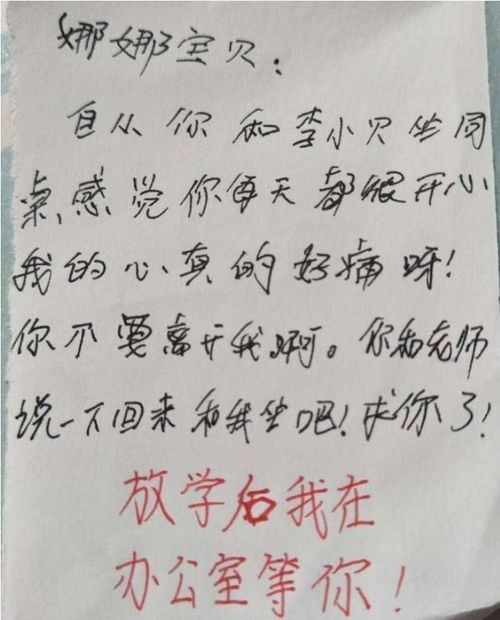 娜娜宝贝:
自从你和李小贝坐同
桌,感觉你每天都很开心
我的心真的好痛呀!
你不要离开我啊。你和老师
说一下回来和我坐吧!求你了!
放学后我在
办公室等你!